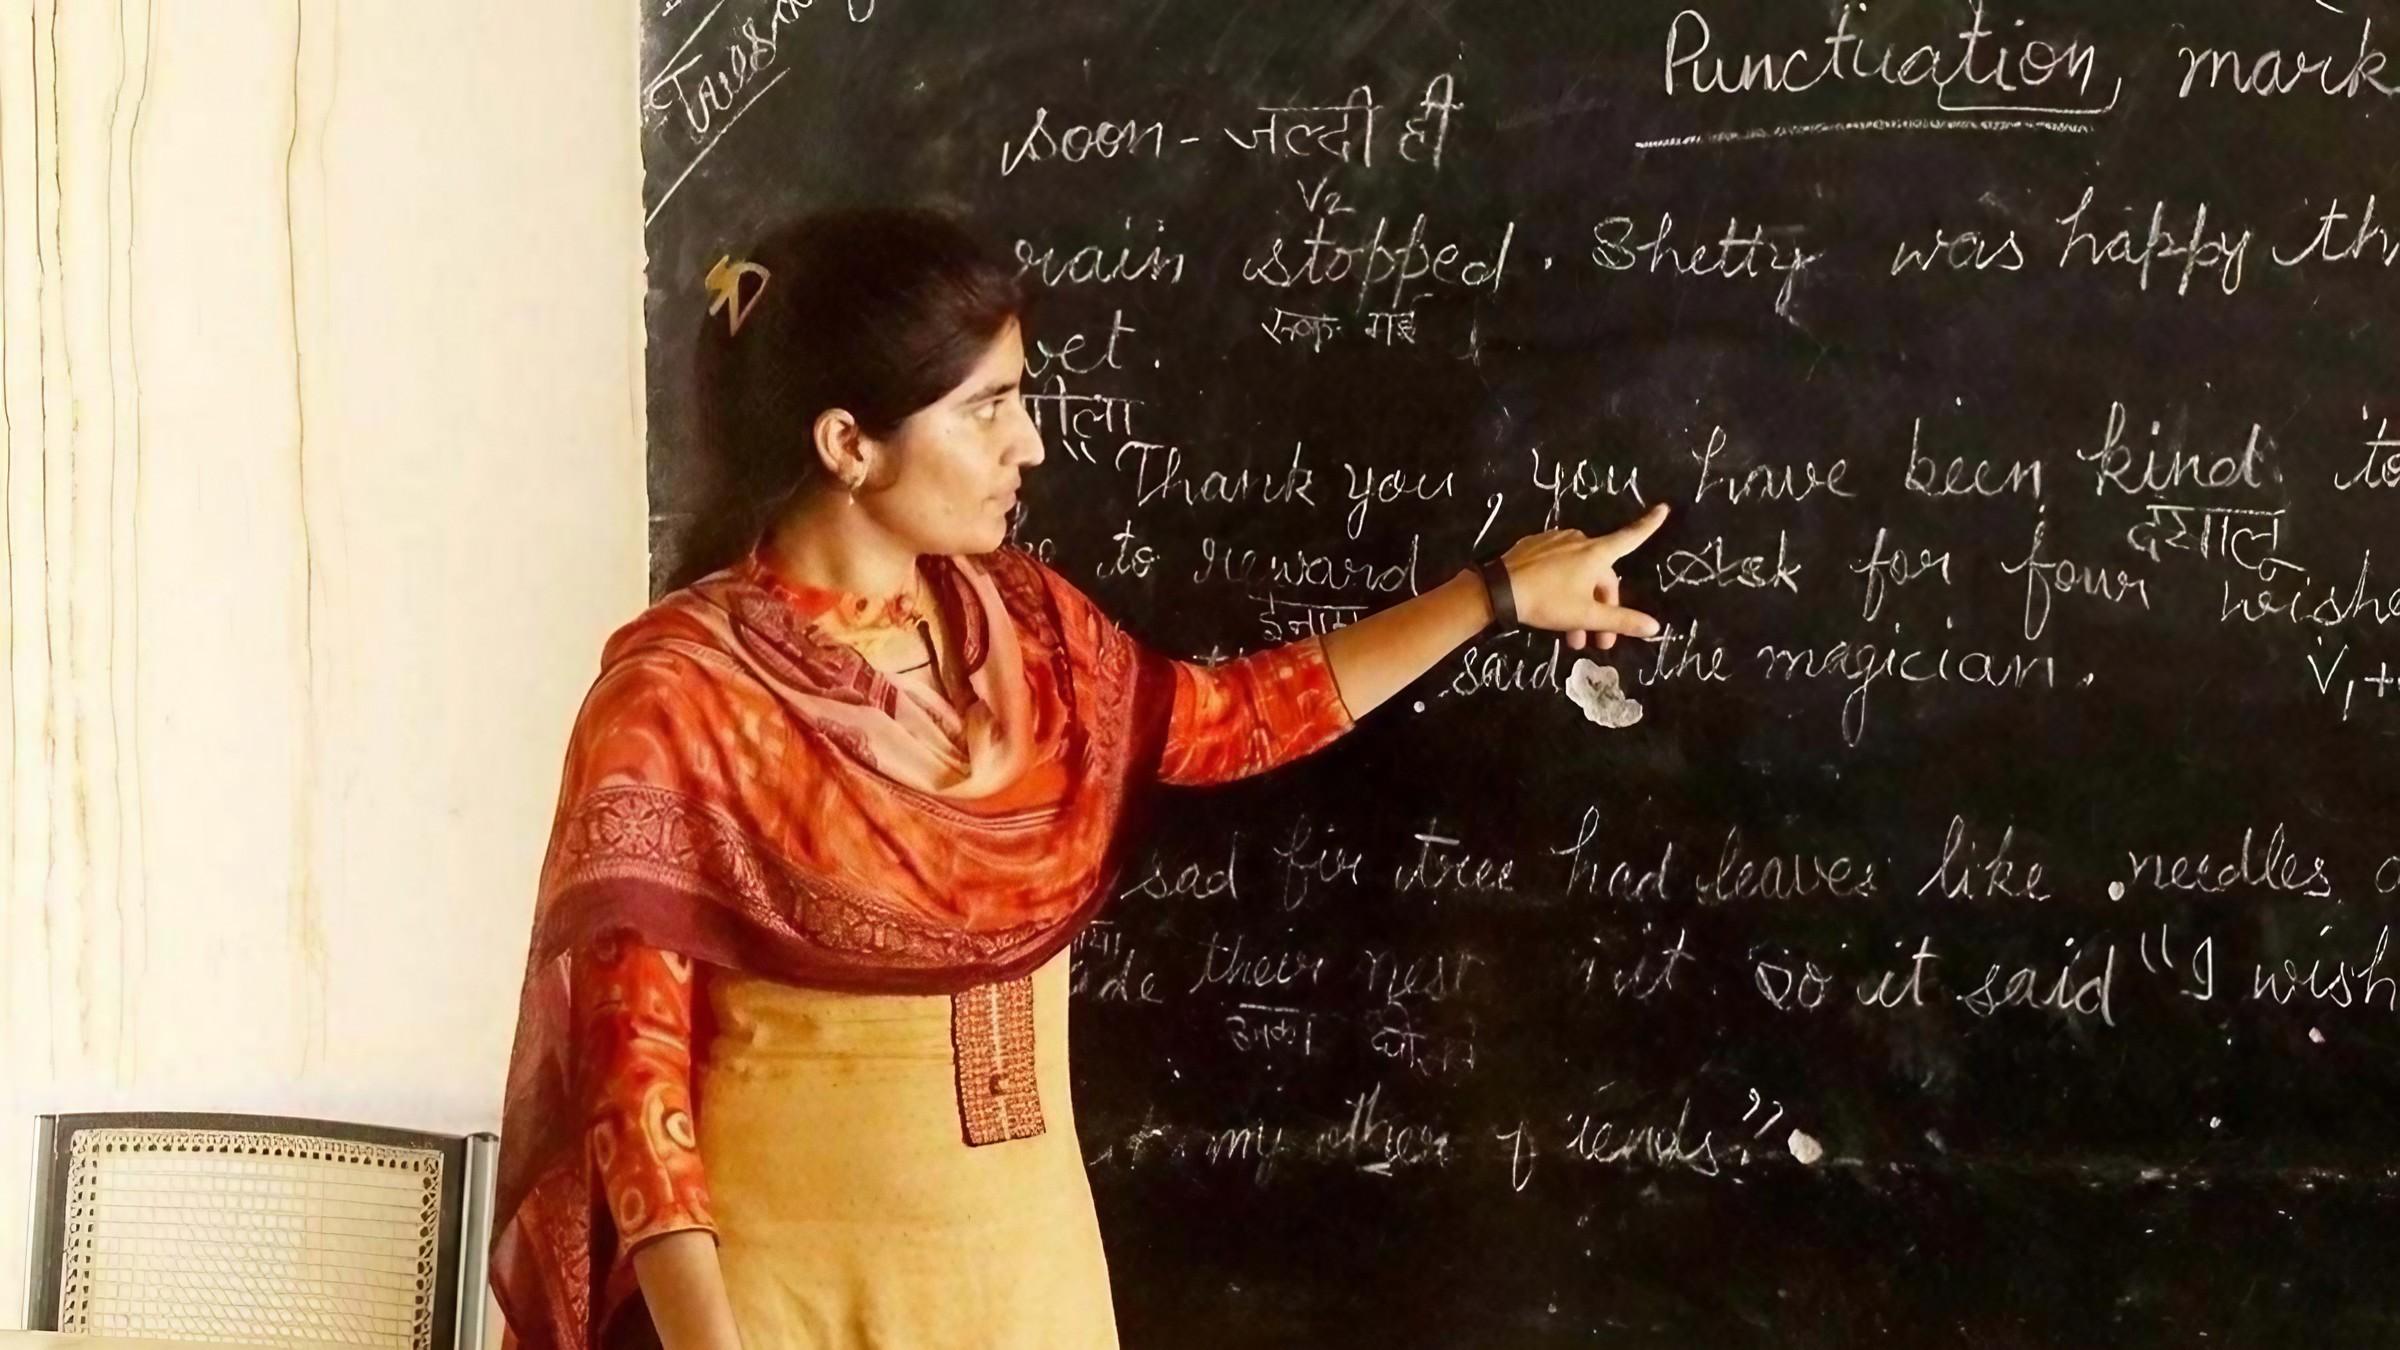 Punctuation mark
soon - जल्दी ही
V2
rain stopped. Shetty was happy
रूक गई
wet.
गीला
"Thank you, you have been kind to
दयालु
to reward Ask for four
ईनाम
said the magician.
V1+
sad fir tree had leaves like needles
their nest it. So it said "I wish
उनका
my other friends".